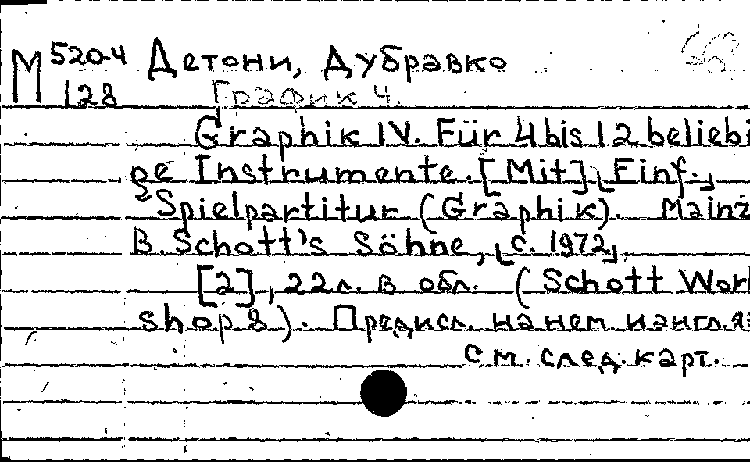 М 520-4 Детони, Дубравко
128 График 4.
Graphik IV. Für 4 bis 12 beliebi
ge Instrumente. [Mit] Einf.
Spielpartitur (Graphik). Mainz
B. Schott's Söhne, [c. 1972]
[2], 22 л. в обл. (Schott Work
shop 8). Предисл. на нем и англ. яз
См. след. карт.